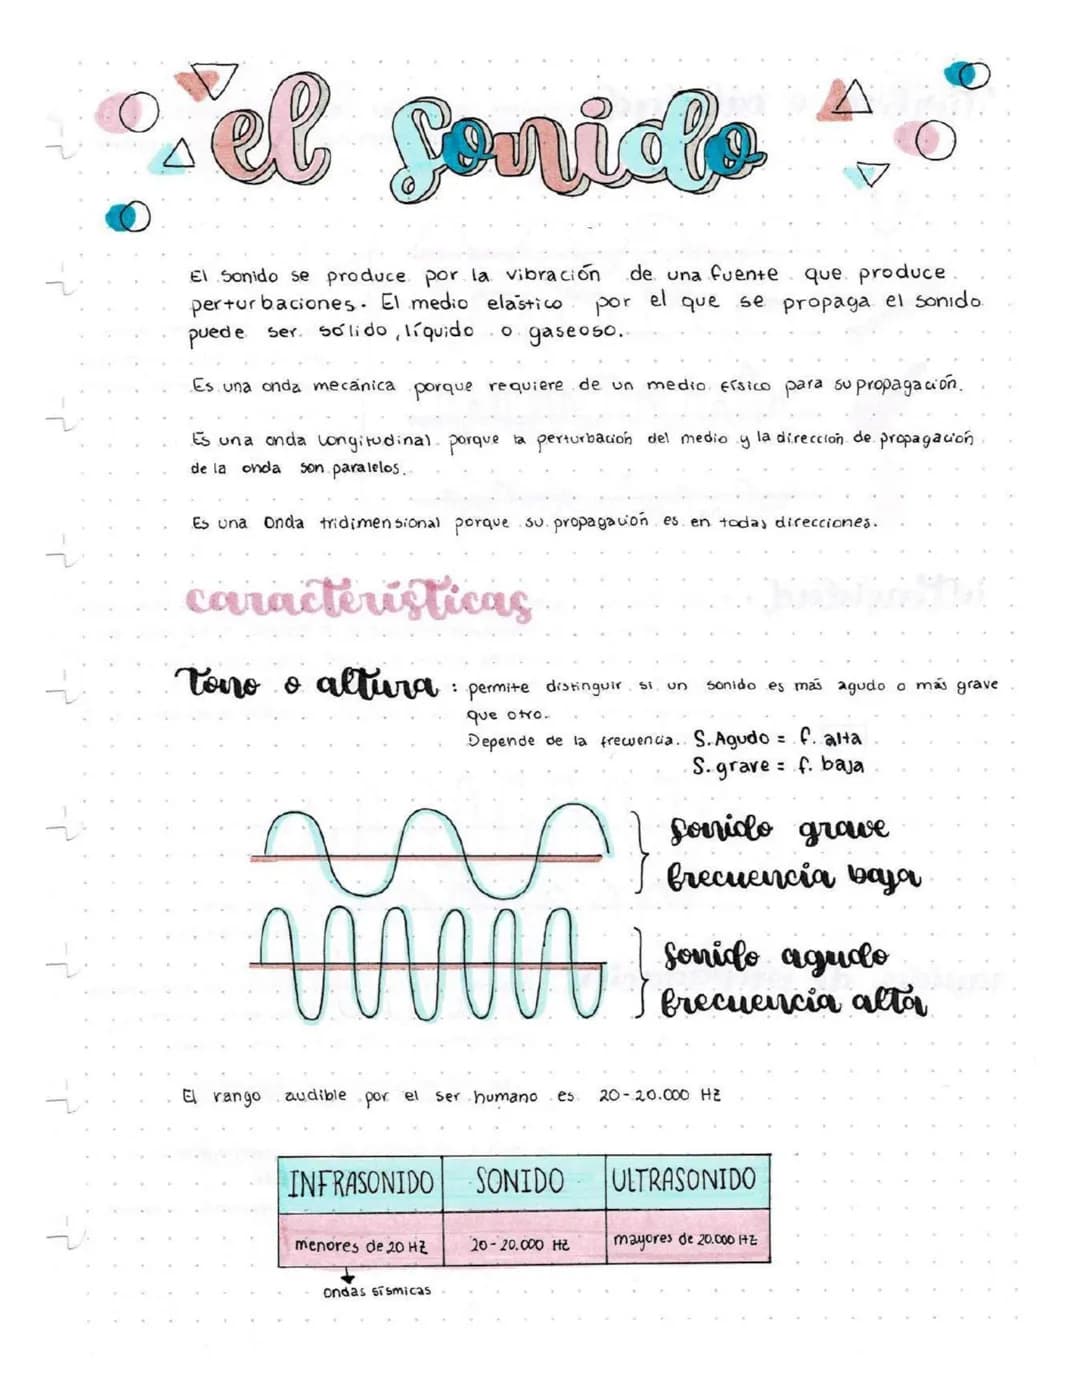 el sonido
El sonido se produce por la vibración de una fuente que produce
perturbaciones. El medio elástico por el que se propaga el sonido
puede ser sólido, líquido o gaseoso.
Es una onda mecánica porque requiere de un medio físico para su propagación.
Es una onda longitudinal porque la perturbación del medio y la dirección de propagación
de la onda son paralelos.
Es una Onda tridimensional porque su propagación es en todas direcciones.
características
Tono o altura: permite distinguir si un sonido es más agudo o más grave
que otro.
Depende de la frecuencia. S. Agudo = f. alta
S. grave = f. baja
Sonido grave
frecuencia baja
Sonido agudo
frecuencia alta
El rango audible por el ser humano es 20-20.000 Hz
INFRASONIDO SONIDO ULTRASONIDO
menores de 20 Hz 20-20.000 Hz mayores de 20.000 Hz
ondas sísmicas